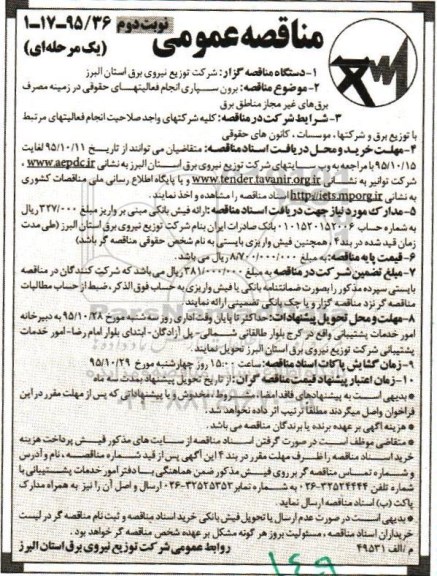 مناقصه عمومی
نوبت دوم
۱-۱۷-۹۵/۳۶
(یک مرحله‌ای)
۱-دستگاه مناقصه گزار: شرکت توزیع نیروی برق استان البرز
۲-موضوع مناقصه: برون سپاری انجام فعالیتهای حقوقی در زمینه مصرف
برق های غیر مجاز مناطق برق
۳-شرایط شرکت در مناقصه: کلیه شرکتهای واجد صلاحیت انجام فعالیتهای مرتبط
با توزیع برق و شرکتها، موسسات، کانون های حقوقی
۴-مهلت خرید و محل دریافت اسناد مناقصه: متقاضیان می توانند از تاریخ ۹۵/۱۰/۱۱ لغایت
۹۵/۱۰/۱۵ با مراجعه به وب سایتهای شرکت توزیع نیروی برق استان البرز به نشانی www.aepdc.ir،
شرکت توانیر به نشانی www.tender.tavanir.org.ir و یا پایگاه اطلاع رسانی ملی مناقصات کشوری
به نشانی http://iets.mporg.ir اسناد مناقصه را مشاهده و اخذ نمایند.
۵-مدارک مورد نیاز جهت دریافت اسناد مناقصه: ارائه فیش بانکی مبنی بر واریز مبلغ ۳۳۷/۰۰۰ ریال
به شماره حساب ۰۱۰۱۵۲۰۱۵۲۰۰۶ بانک صادرات ایران بنام شرکت توزیع نیروی برق استان البرز (طی مدت
زمان قید شده در بند ۴ همچنین فیش واریزی بایستی به نام شخص حقوقی مناقصه گر باشد)
۶-قیمت پایه مناقصه: به مبلغ ۸/۷۰۰/۰۰۰/۰۰۰ ریال می باشد.
۷-مبلغ تضمین شرکت در مناقصه به مبلغ ۳۸۱/۰۰۰/۰۰۰ ریال می باشد که شرکت کنندگان در مناقصه
بایستی سپرده مذکور را بصورت ضمانتنامه بانکی یا فیش واریزی به حساب فوق الذکر، ضبط از حساب مطالبات
مناقصه گر نزد مناقصه گزار و یا چک بانکی تضمینی ارائه نمایند
۸-مهلت و محل تحویل پیشنهادات: حداکثر تا پایان وقت اداری روز سه شنبه مورخ ۹۵/۱۰/۲۸ به دبیرخانه
امور خدمات پشتیبانی واقع در کرج بلوار طالقانی شمالی- پل آزادگان- ابتدای بلوار امام رضا- امور خدمات
پشتیبانی شرکت توزیع نیروی برق استان البرز تحویل نمایند.
۹-زمان گشایش پاکات اسناد مناقصه: ساعت ۱۵:۰۰ روز چهارشنبه مورخ ۹۵/۱۰/۲۹
۱۰-زمان اعتبار پیشنهاد قیمت مناقصه گران: از تاریخ تحویل پیشنهاد بمدت سه ماه
* بدیهی است به پیشنهادهای فاقد امضاء، مشروط، مخدوش و یا پیشنهاداتی که پس از مهلت مقرر در این
فراخوان واصل میگردند مطلقا ترتیب اثر داده نخواهد شد.
* هزینه آگهی بر عهده برنده یا برندگان مناقصه می باشد.
* متقاضی موظف است در صورت گرفتن اسناد مناقصه از سایت های مذکور فیش پرداخت هزینه
خرید اسناد مناقصه را ظرف مهلت مقرر در بند ۴ این آگهی پس از قید شماره مناقصه، نام و آدرس
و شماره تماس مناقصه گر بر روی فیش مذکور ضمن هماهنگی با دفتر امور خدمات پشتیبانی با
شماره تلفن ۳۲۵۲۴۴۴۴-۰۲۶ به شماره نمابر ۳۲۵۲۵۳۵۲-۰۲۶ ارسال و اصل آن را نیز به همراه مدارک
پاکت (ب) اسناد مناقصه ارسال نماید.
* بدیهی است در صورت عدم ارسال یا تحویل فیش بانکی خرید اسناد مناقصه و ثبت نام مناقصه گر در لیست
خریداران اسناد مناقصه، مسئولیت بروز هر گونه مشکل بر عهده شخص مناقصه گر خواهد بود.
م/الف ۴۹۵۳۱
روابط عمومی شرکت توزیع نیروی برق استان البرز